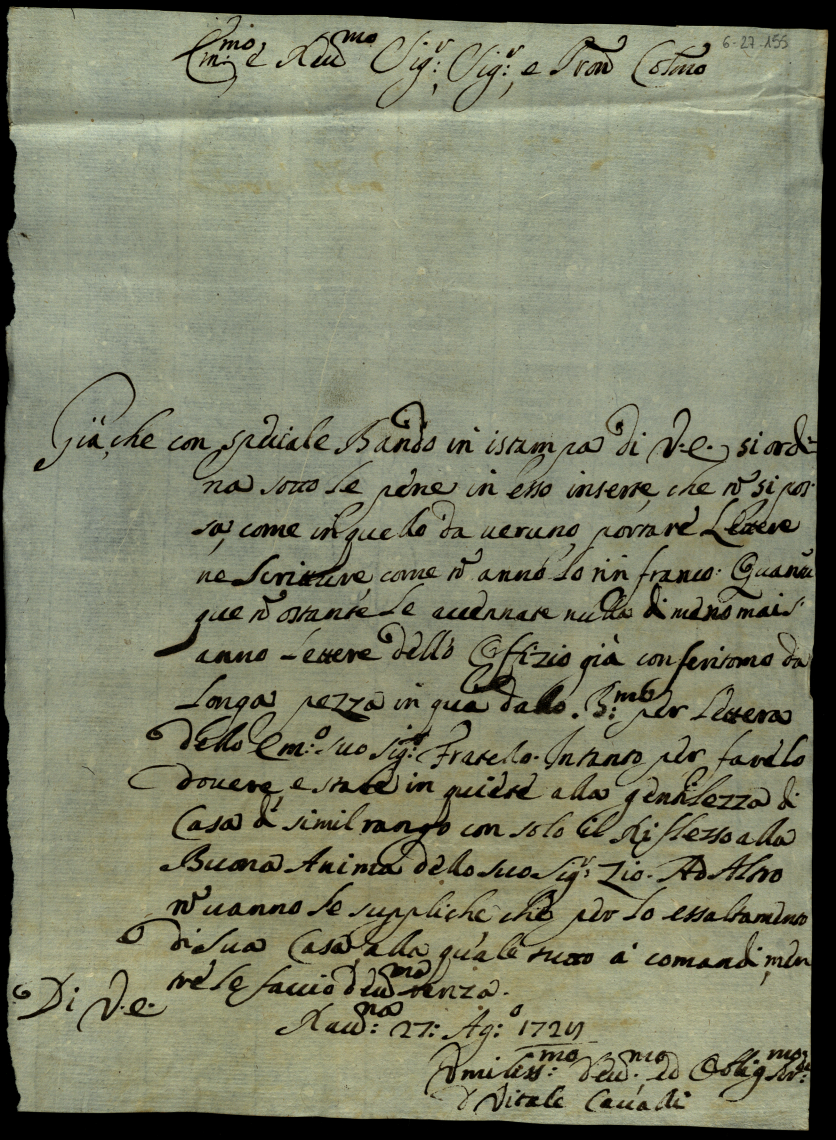 6-27-155
Em:mo e Reu:mo Sig:r, Sig:r, e Pron Colmo
Già, che con speciale Bando in istampa di V.e. si ordi=
na sotto le pene in esso inserte, che n si pos-
sa, come in quello da veruno portare Lettere
ne Scritture, come n anno lo in franco. Quan
que n ostante le accennate nulla di meno mai s'
anno Lettere dello Offizio già conferitomo da
Longa pezza in qua dallo B:mo per Lettera
dello Em:o suo sig:r Fratello. Intanto per fare lo
douere, e stare in quiete alla gentilezza di
Casa di simil rango con solo il Riflesso alla
Buona Anima dello suo Sig:r Zio. Ad Altro
n uanno le suppliche che per lo essaltamento
di Sua Casa, alla quale tutto a' comandi, men
tre le faccio deu:ma renza.
Di V.e.
Rau:na 27: Ag:o 1729
Vmiliss:mo deu:mo ed Obblig:mo
D Vitale Cavalli